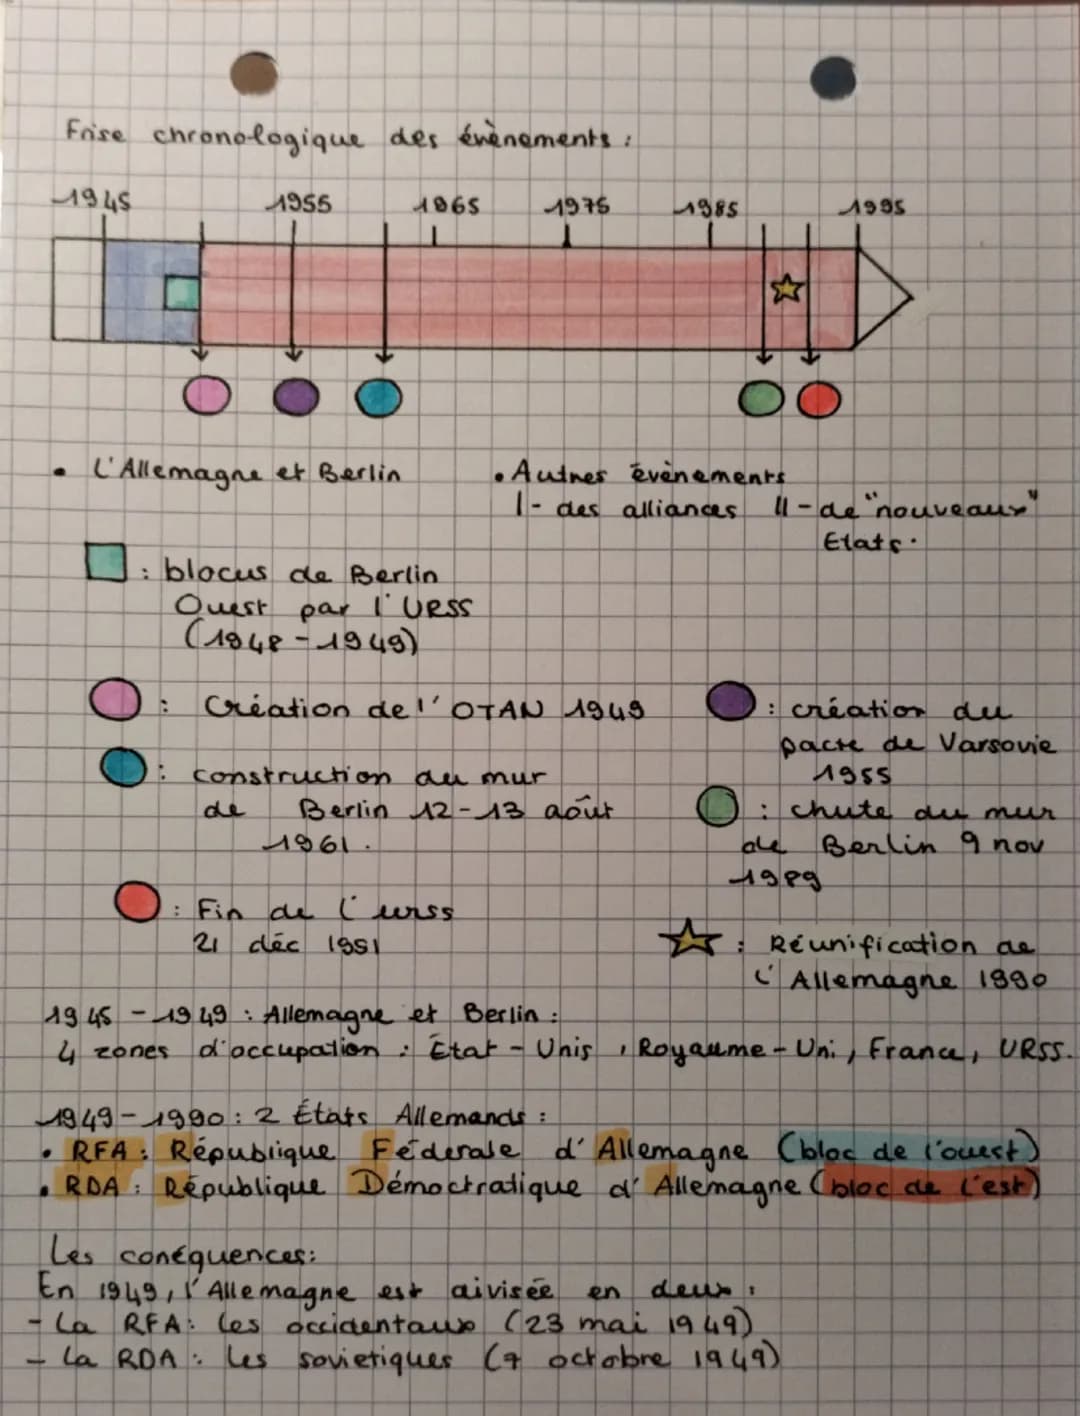 Frise chronologique des évènements :
1945 1955 1965 1975 1985 1995
• L'Allemagne et Berlin
• Autres évènements
I - des alliances II - de "nouveaux"
Etats.
: blocus de Berlin
Ouest par l'URSS
(1948 - 1949)
: Création de l'OTAN 1949
: création du
pacte de Varsovie
1955
: construction du mur
de Berlin 12-13 août
1961.
: chute du mur
de Berlin 9 nov
1989
: Fin de l'urss
21 déc 1991
: Réunification de
l'Allemagne 1990
1945 - 1949 : Allemagne et Berlin :
4 zones d'occupation : État - Unis , Royaume - Uni, France, URSS.
1949 - 1990 : 2 États Allemands :
• RFA : République Féderale d'Allemagne (bloc de l'ouest)
• RDA : République Démoctratique d'Allemagne (bloc de l'est)
Les conéquences:
En 1949, l'Allemagne est divisée en deux :
- La RFA : les occidentaux (23 mai 1949)
- La RDA : les sovietiques (7 octobre 1949)